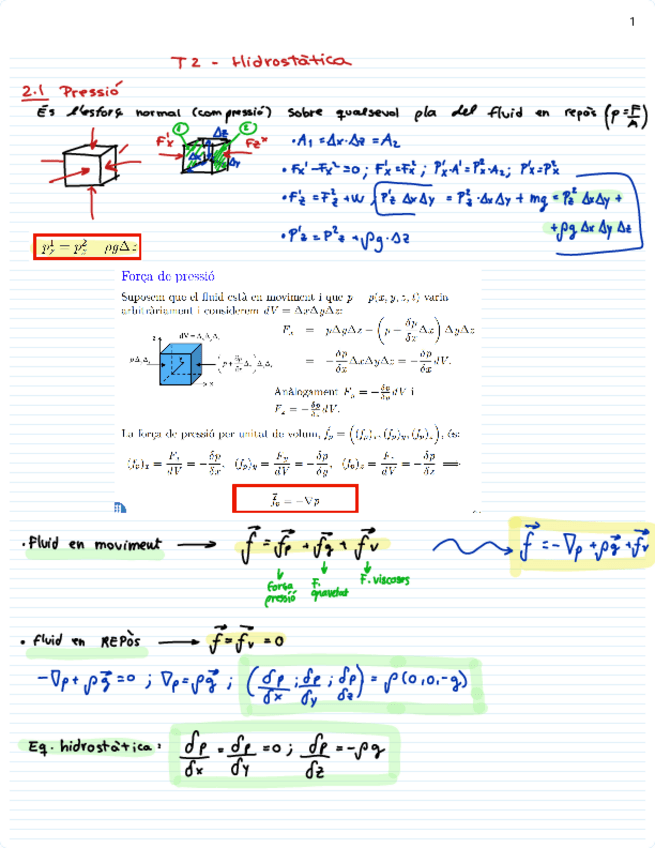 1
T2 - Hidrostàtica
2.1 Pressió
És l'esforç normal (compressió) sobre qualsevol pla del fluid en repòs (p = F/A)
① ② Δz Δx Δy
• A₁ = Δx·Δz = A₂
• Fx¹ - Fx² = 0 ; Fx¹ = Fx² ; Px¹·A¹ = Px²·A₂ ; Px¹ = Px²
• Fz¹ = Fz² + W ; Pz¹ Δx Δy = Pz²·Δx Δy + mg = Pz² Δx Δy +
+ ρg Δx Δy Δz
• Pz¹ = Pz² + ρg·Δz
Força de pressió
Suposem que el fluid està en moviment i que p = p(x, y, z, t) varia
arbitràriament i considerem dV = ΔxΔyΔz:
Fₓ = pΔyΔz − (p + δp/δx Δx) ΔyΔz
= −δp/δx ΔxΔyΔz = −δp/δx dV.
Anàlogament F_y = −δp/δy dV i
F_z = −δp/δz dV.
La força de pressió per unitat de volum, f⃗p = ((fp)x, (fp)y, (fp)z), és:
(fp)x = Fx/dV = −δp/δx, (fp)y = Fy/dV = −δp/δy, (fp)z = Fz/dV = −δp/δz ⟹
f⃗p = −∇p
• Fluid en moviment ⟶ f⃗ = f⃗p + f⃗g + f⃗v
f⃗ = -∇p + ρg⃗ + f⃗v
Força pressió
F. gravetat
F. viscoses
• Fluid en REPÒS ⟶ f⃗ = f⃗v = 0
-∇p + ρg⃗ = 0 ; ∇p = ρg⃗ ; (δp/δx ; δp/δy ; δp/δz) = ρ(0,0,-g)
Eq. hidrostàtica: δp/δx = δp/δy = 0 ; δp/δz = -ρg